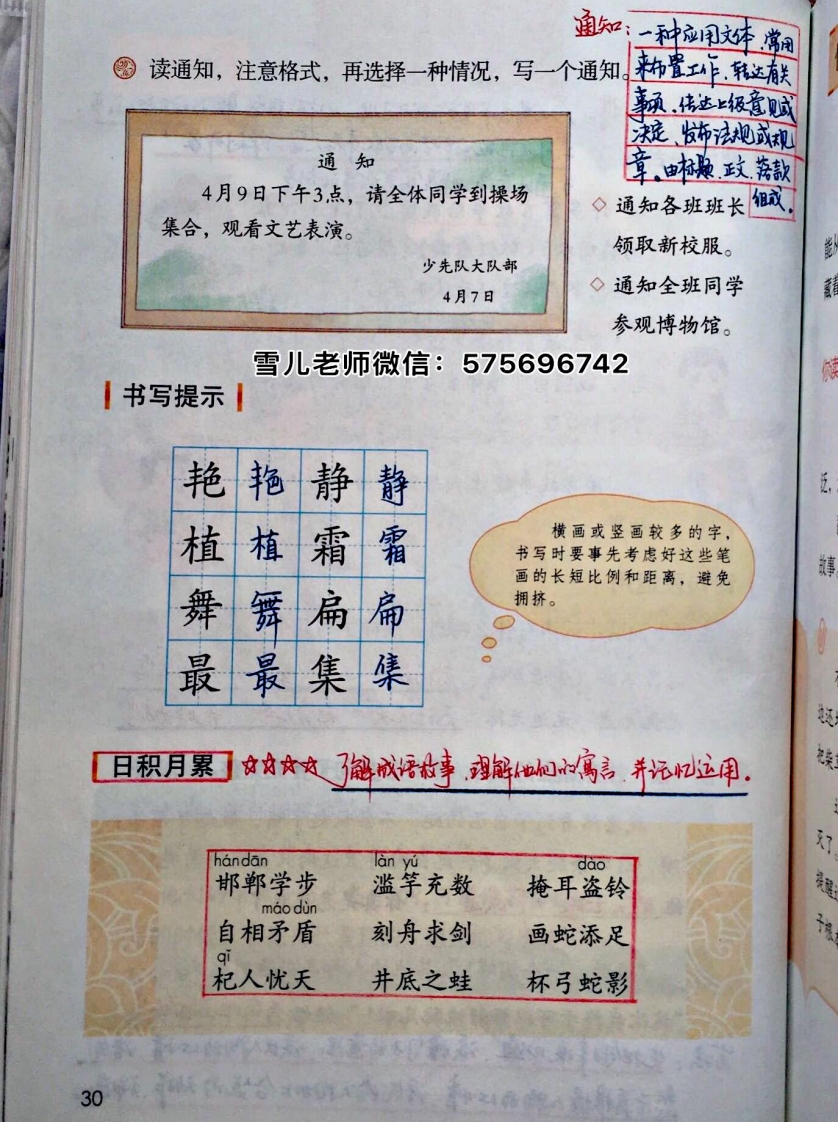 通知：一种应用文体，常用
来布置工作、转达有关
事项、传达上级意见或
决定、发布法规或规
章。由标题、正文、落款
组成。
读通知，注意格式，再选择一种情况，写一个通知。
通 知
4月9日下午3点，请全体同学到操场
集合，观看文艺表演。
少先队大队部
4月7日
◇ 通知各班班长
领取新校服。
◇ 通知全班同学
参观博物馆。
雪儿老师微信：575696742
书写提示
艳 艳 静 静
植 植 霜 霜
舞 舞 扁 扁
最 最 集 集
横画或竖画较多的字，
书写时要事先考虑好这些笔
画的长短比例和距离，避免
拥挤。
日积月累 ☆☆☆☆ 了解成语故事、理解他们的寓言、并记忆运用。
hándān làn yú dào
邯郸学步 滥竽充数 掩耳盗铃
máo dùn
自相矛盾 刻舟求剑 画蛇添足
qǐ
杞人忧天 井底之蛙 杯弓蛇影
30
你读
故事
把柴
死了。
提醒